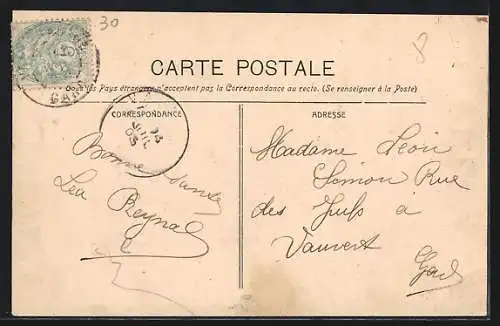 30
8
CARTE POSTALE
Tous les Pays étrangers n'acceptent pas la Correspondance au recto. (Se renseigner à la Poste)
CORRESPONDANCE
ADRESSE
GARD
Bonne santé
Lea Reynal
Madame Léon
Simon Rue
des Juifs à
Vauvert
Gard